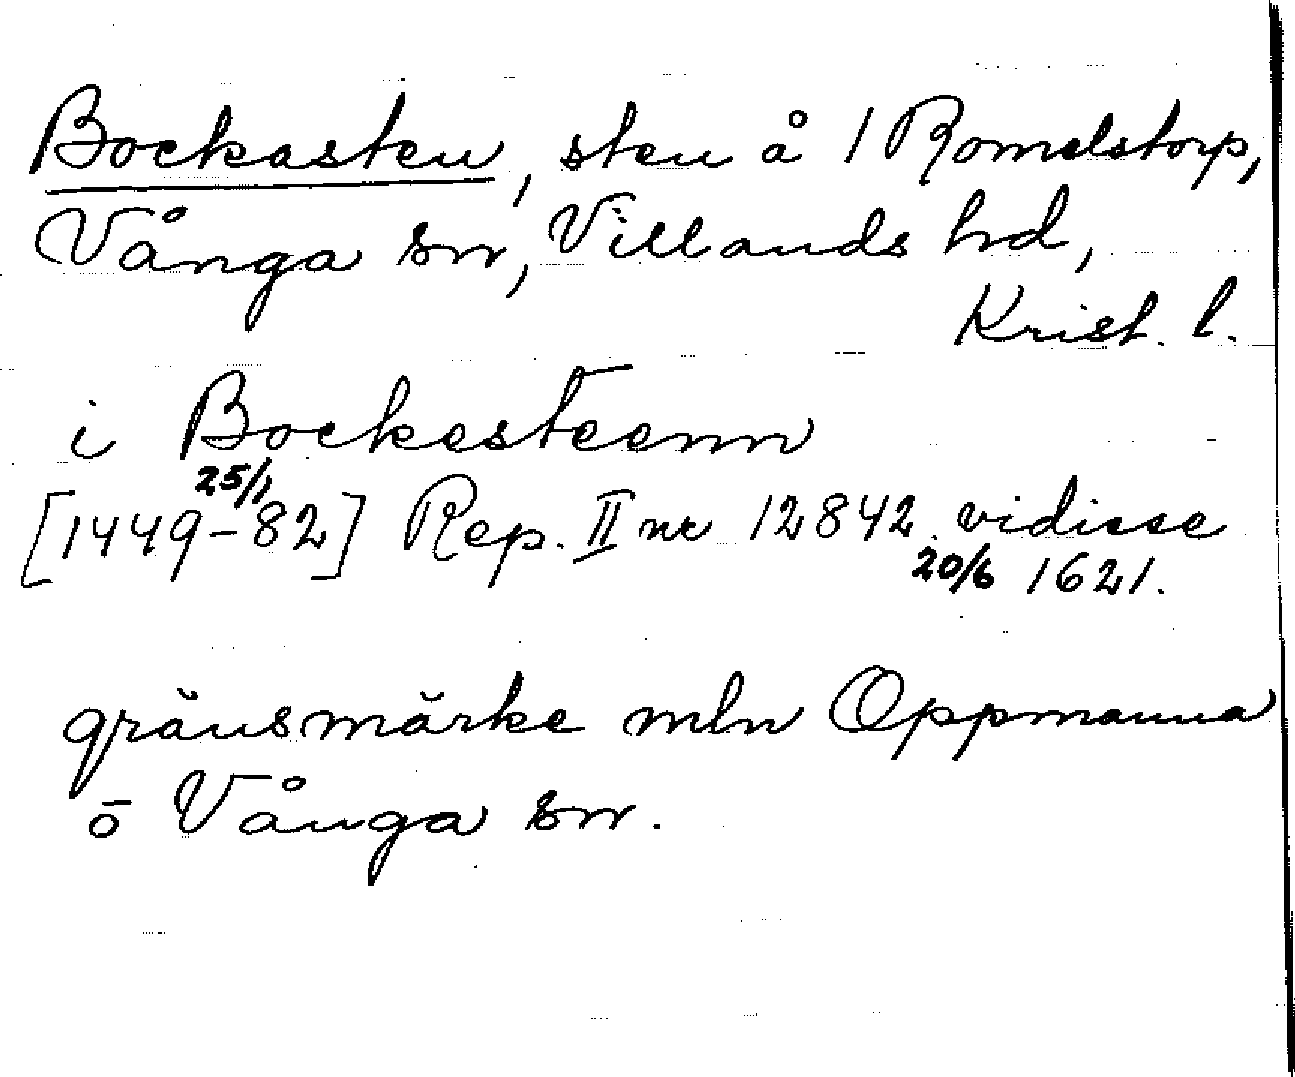 Bockasten, sten å 1 Romelstorp,
Vånga sn, Villands hd,
Krist. l.
i Bockesteenn
25/1
[1449-82] Rep. II nr 12842 vidisse
20/6 1621.
gränsmärke mln Oppmanna
o Vånga sn.